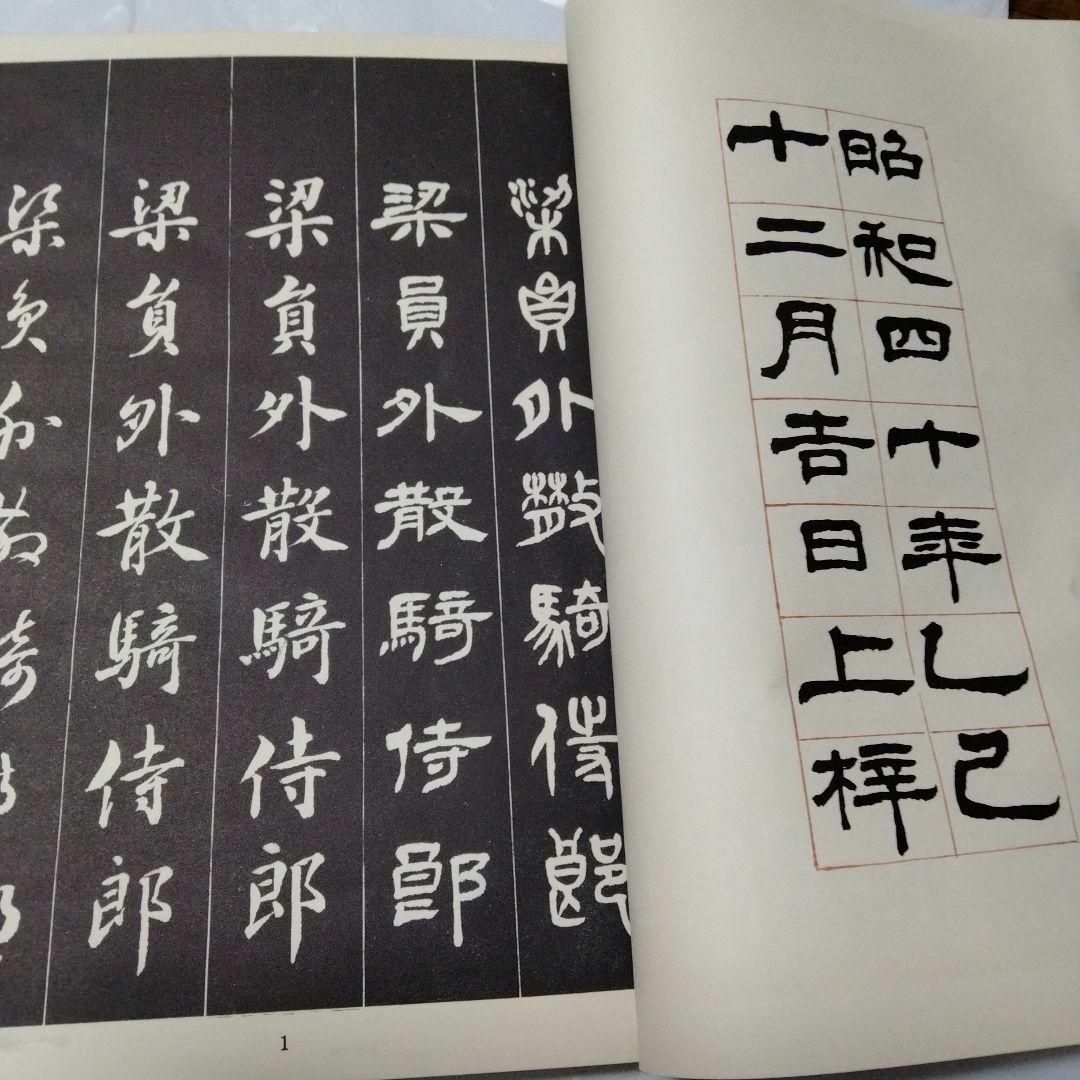 昭和四十年乙巳
十二月吉日上梓
梁員外散騎侍郎
梁員外散騎侍郎
梁員外散騎侍郎
梁員外散騎侍郎
梁員外散騎侍郎
1